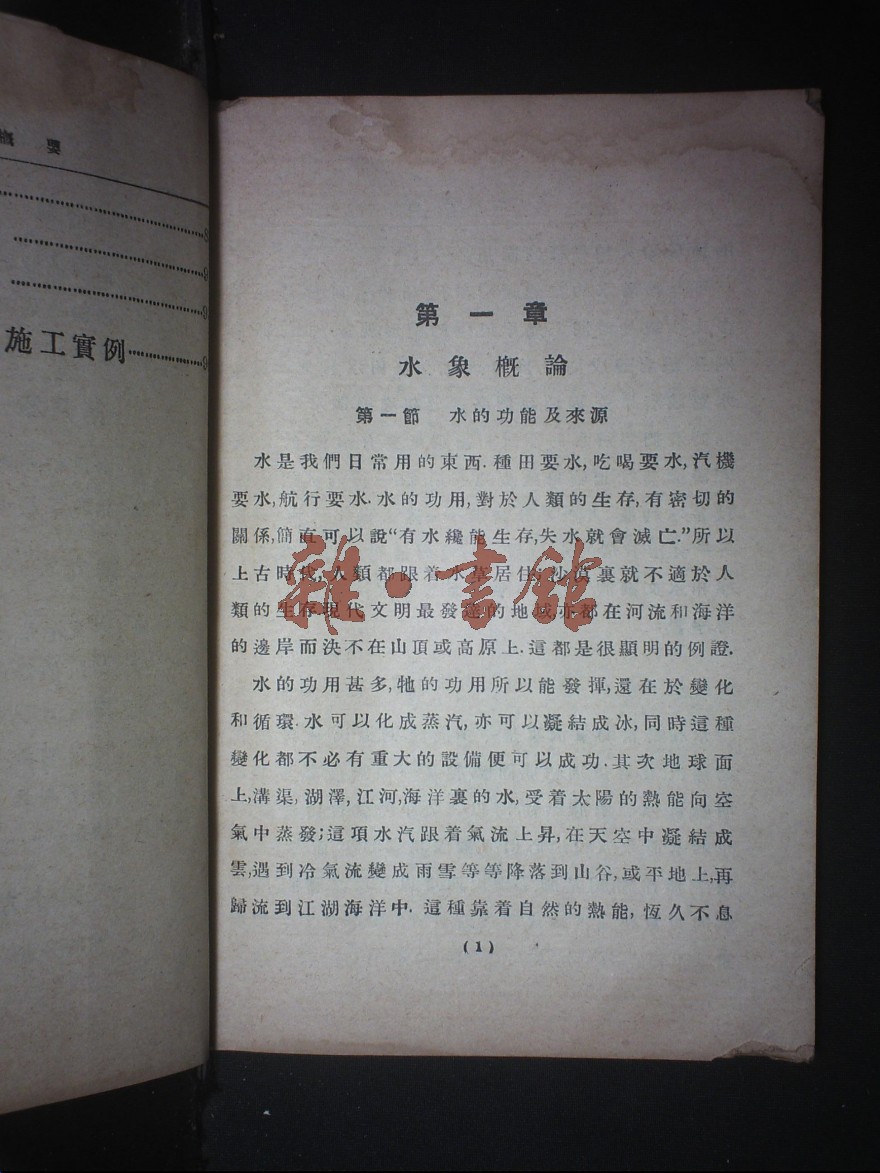 概要
8
9
9
施工實例 9
第一章
水象概論
第一節 水的功能及來源
水是我們日常用的東西.種田要水,吃喝要水,汽機
要水,航行要水.水的功用,對於人類的生存,有密切的
關係,簡直可以說“有水纔能生存,失水就會滅亡.”所以
上古時代,人類都跟着水草居住,沙漠裏就不適於人
類的生存.現代文明最發達的地域,亦都在河流和海洋
的邊岸而決不在山頂或高原上.這都是很顯明的例證.
水的功用甚多,牠的功用所以能發揮,還在於變化
和循環.水可以化成蒸汽,亦可以凝結成冰,同時這種
變化都不必有重大的設備便可以成功.其次地球面
上,溝渠,湖澤,江河,海洋裏的水,受着太陽的熱能向空
氣中蒸發;這項水汽跟着氣流上昇,在天空中凝結成
雲,遇到冷氣流變成雨雪等等降落到山谷,或平地上,再
歸流到江湖海洋中.這種靠着自然的熱能,恆久不息
(1)
雜·書館